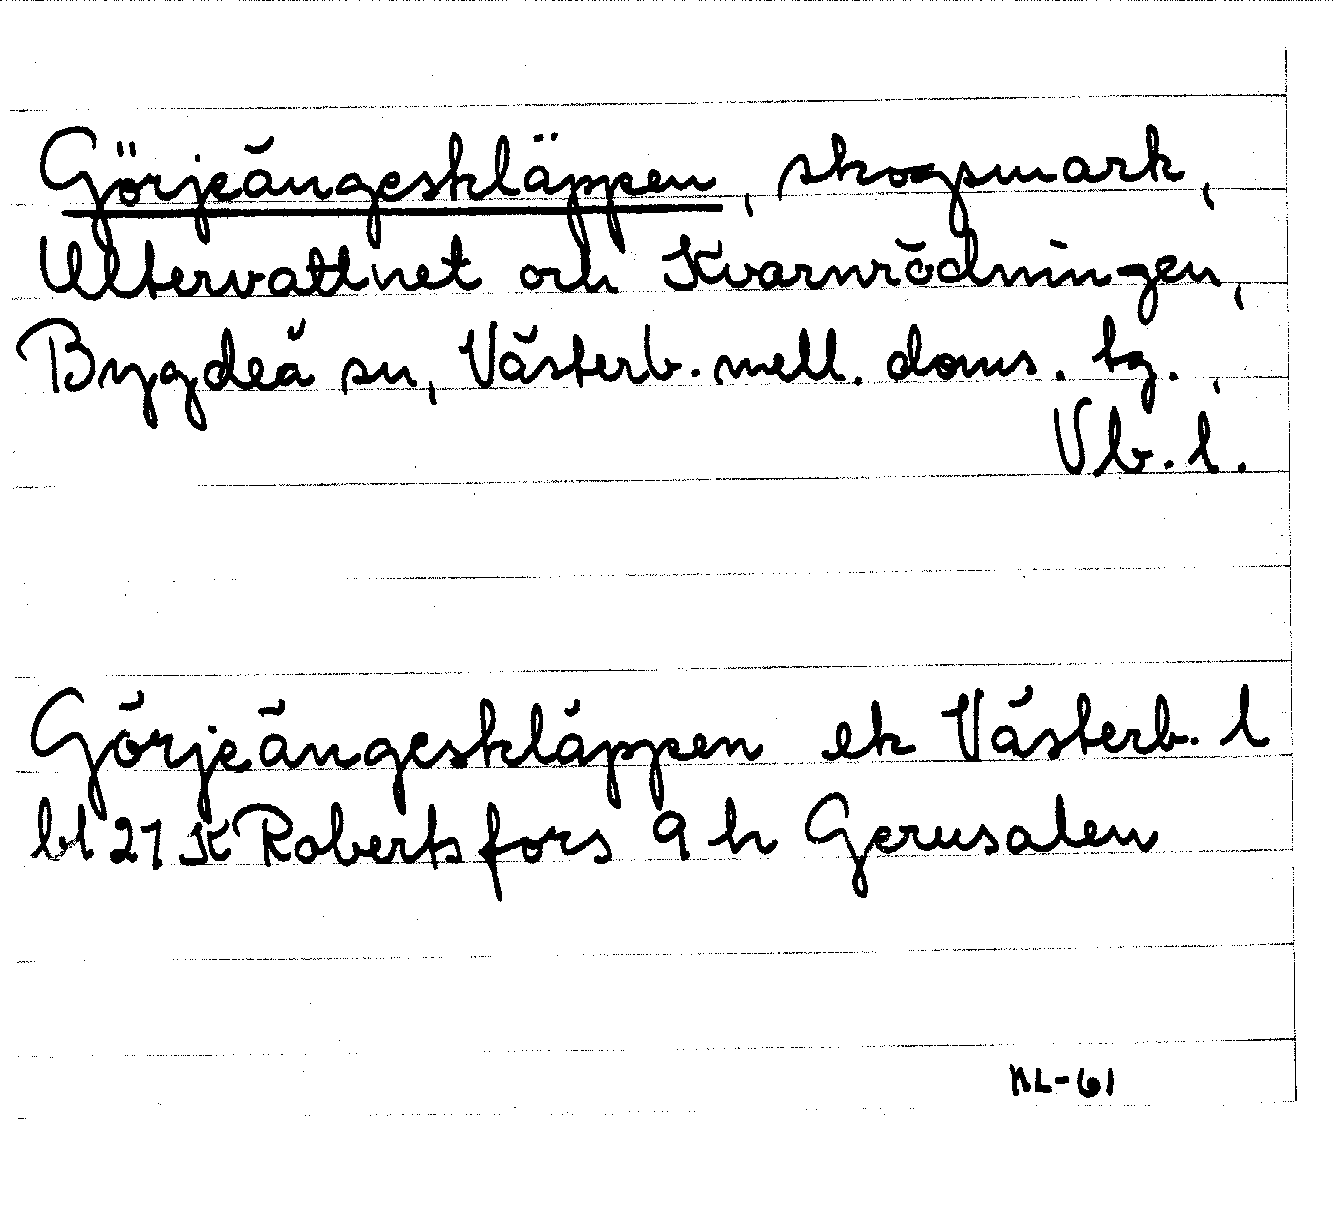 Görjeängeskläppen, skogsmark,
Ultervattnet och Kvarnrödningen,
Bygdeå sn, Västerb. mell. doms. tg.,
Vb. l.
Görjeängeskläppen ek Västerb. l
bl 21 K Robertsfors 9 h Gerusalen
KL-61